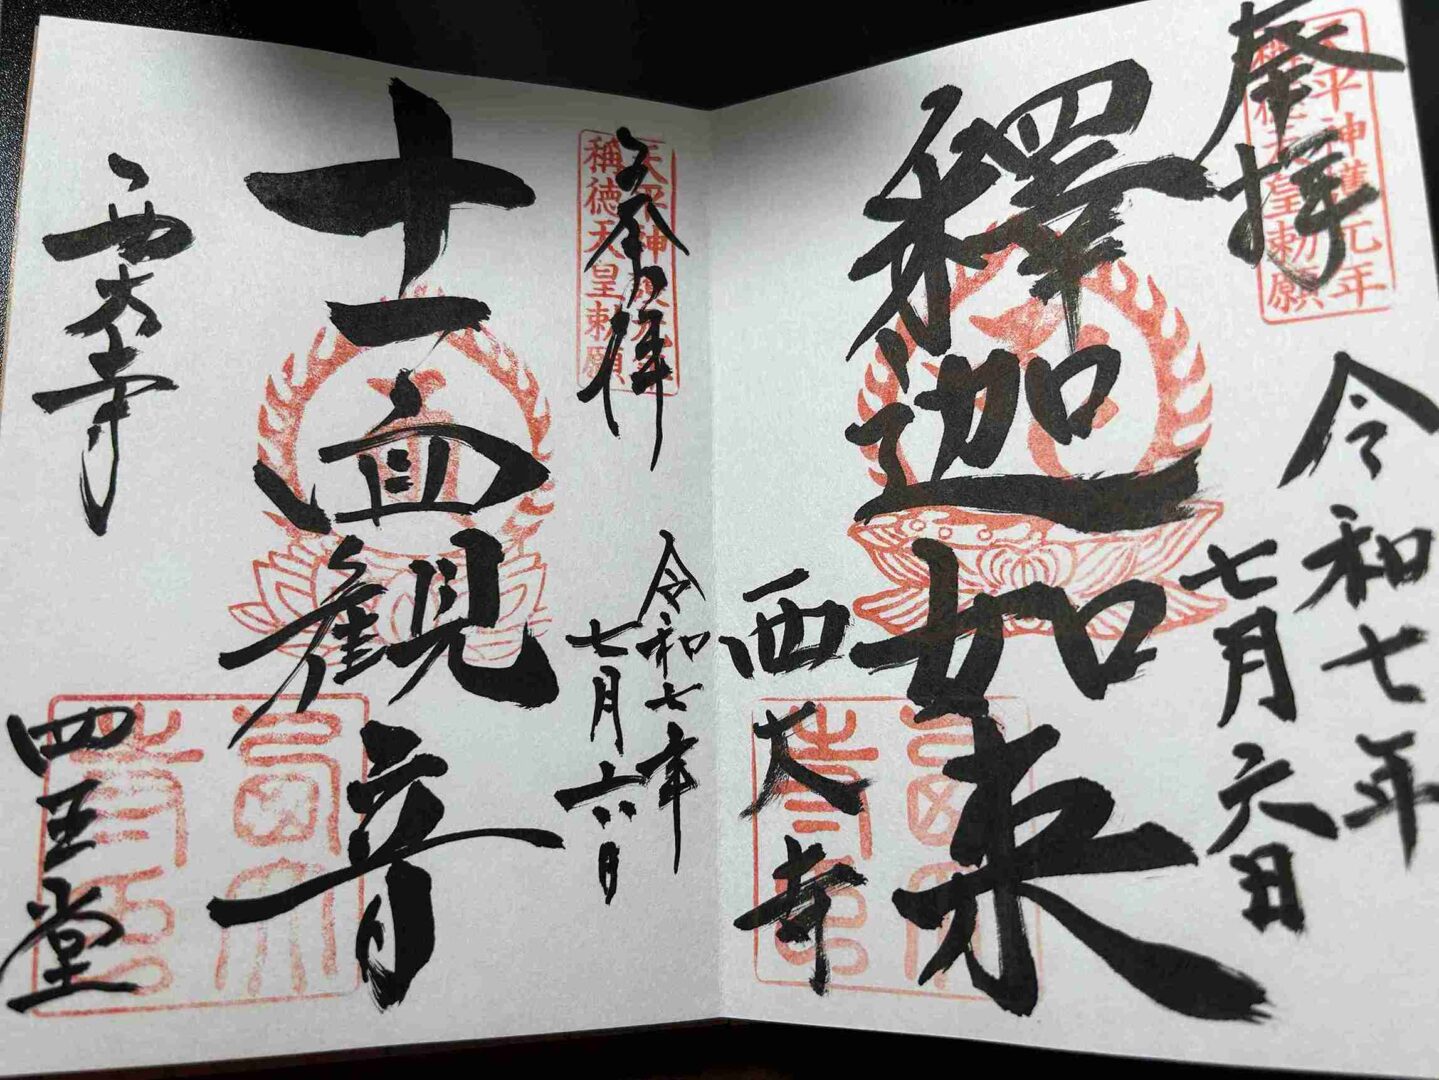 奉拝
天平神護元年
稱徳天皇勅願
令和七年
七月六日
釋迦如来
西大寺
奉拝
天平神護元年
稱徳天皇勅願
令和七年
七月六日
十一面観音
西大寺
四王堂